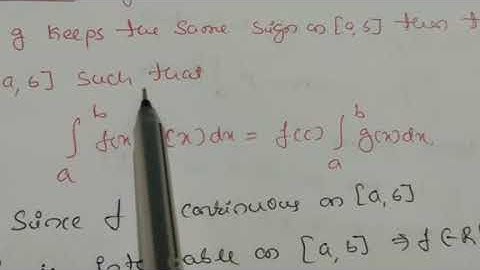 g keeps the same sign on [a,b] then
a, b] such that
∫ₐᵇ f(x) (x)dx = f(c) ∫ₐᵇ g(x)dx.
Since f continuous on [a,b]
on [a,b] ⇒ f ∈ R